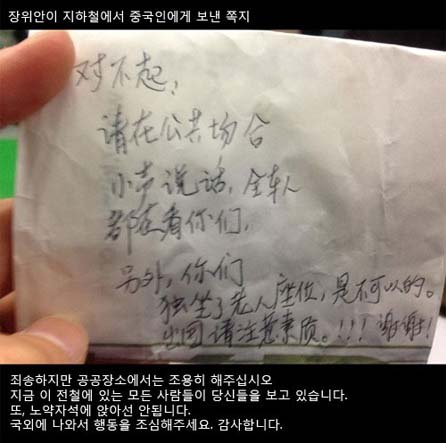 장위안이 지하철에서 중국인에게 보낸 쪽지
对不起，
请在公共场合
小声说话，全车人
都在看你们，
另外，你们
独坐了老人座位，是不可以的。
出国请注意素质。!!! 谢谢!
죄송하지만 공공장소에서는 조용히 해주십시오
지금 이 전철에 있는 모든 사람들이 당신들을 보고 있습니다.
또, 노약자석에 앉아선 안됩니다.
국외에 나와서 행동을 조심해주세요. 감사합니다.